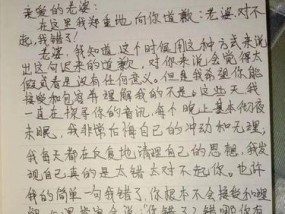 亲爱的老婆:
在这里我郑重地向你道歉:老婆对不
起,我错了!
老婆,我知道,这个时候用这种方式来说
出这句迟来的道歉,对你来说会觉得太
假或者是没有任何意义。但是我希望你能
接受和包容并理解我的不是。这些天我
一直在探寻你的音讯,每个晚上基本彻夜
未眠。我非常后悔自己的冲动和无理,
我每天都在反复地清理自己的思想,我发
现自己真的是太错太对不起你。也许
我的简单一句我错了,你根本不会接受和理